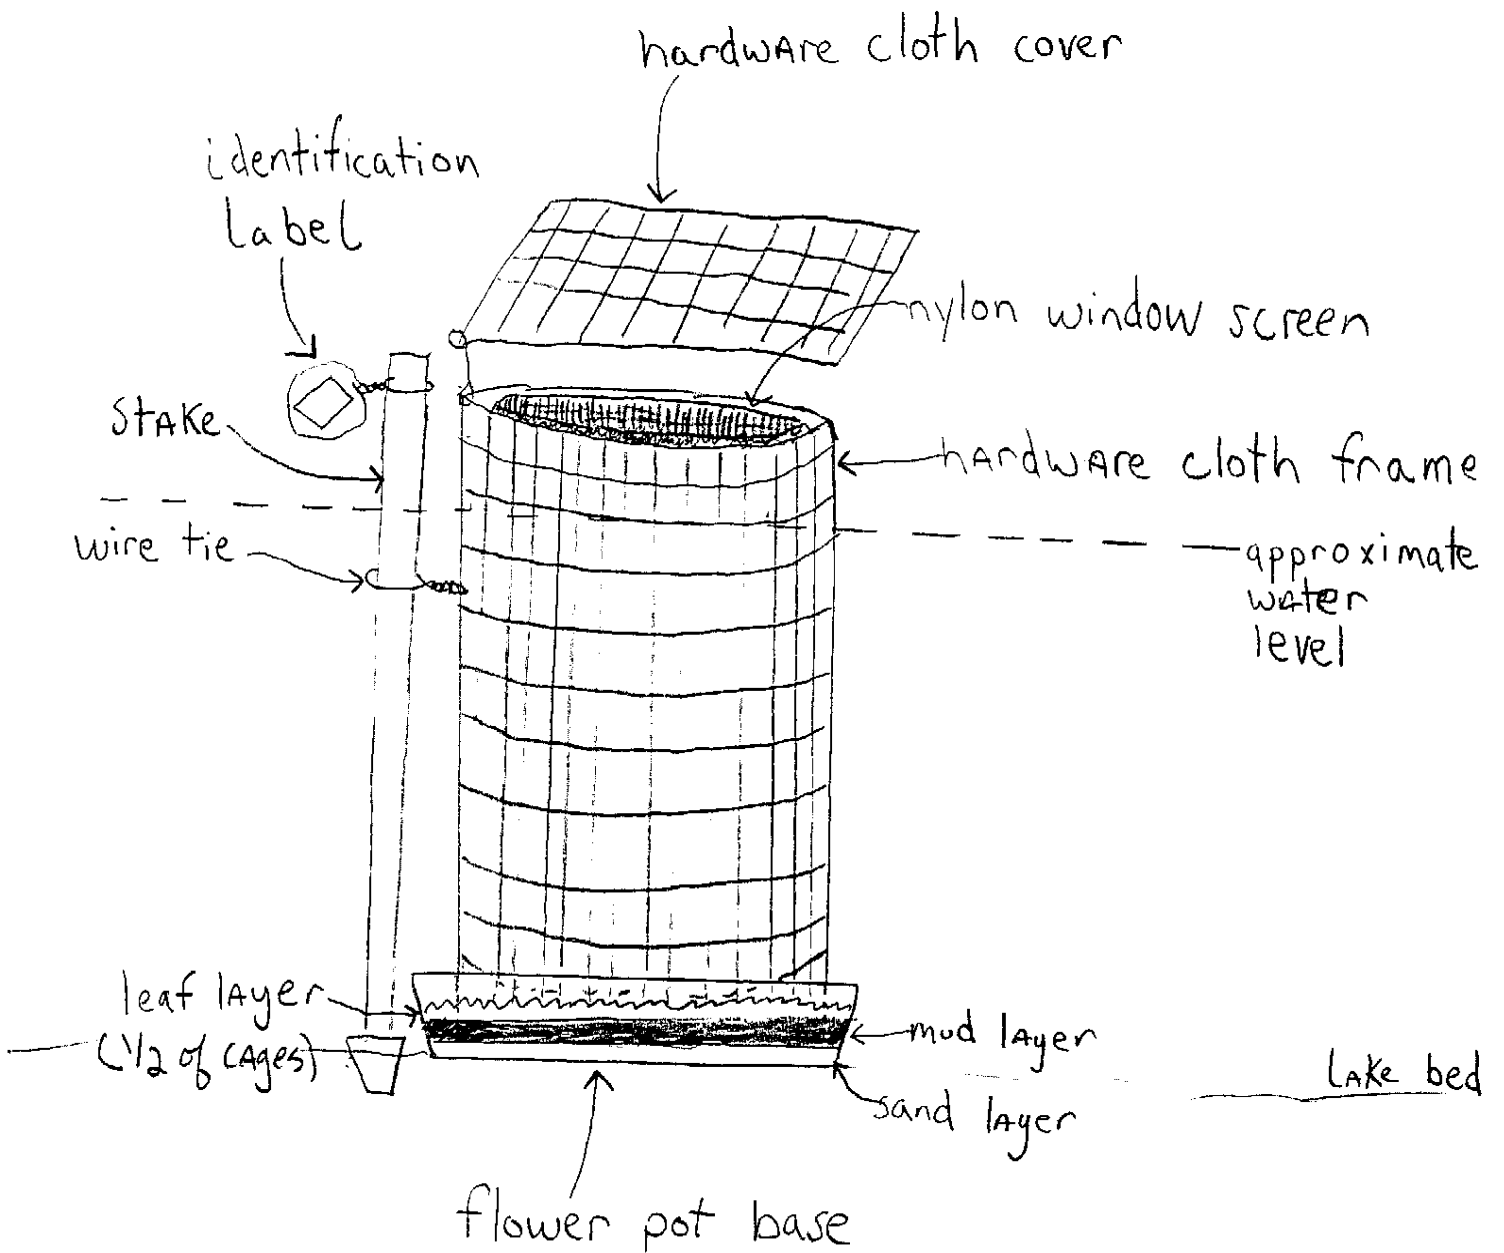 hardware cloth cover
identification
label
nylon window screen
stake
hardware cloth frame
wire tie
approximate
water
level
leaf layer
(1/2 of cages)
mud layer
lake bed
sand layer
flower pot base